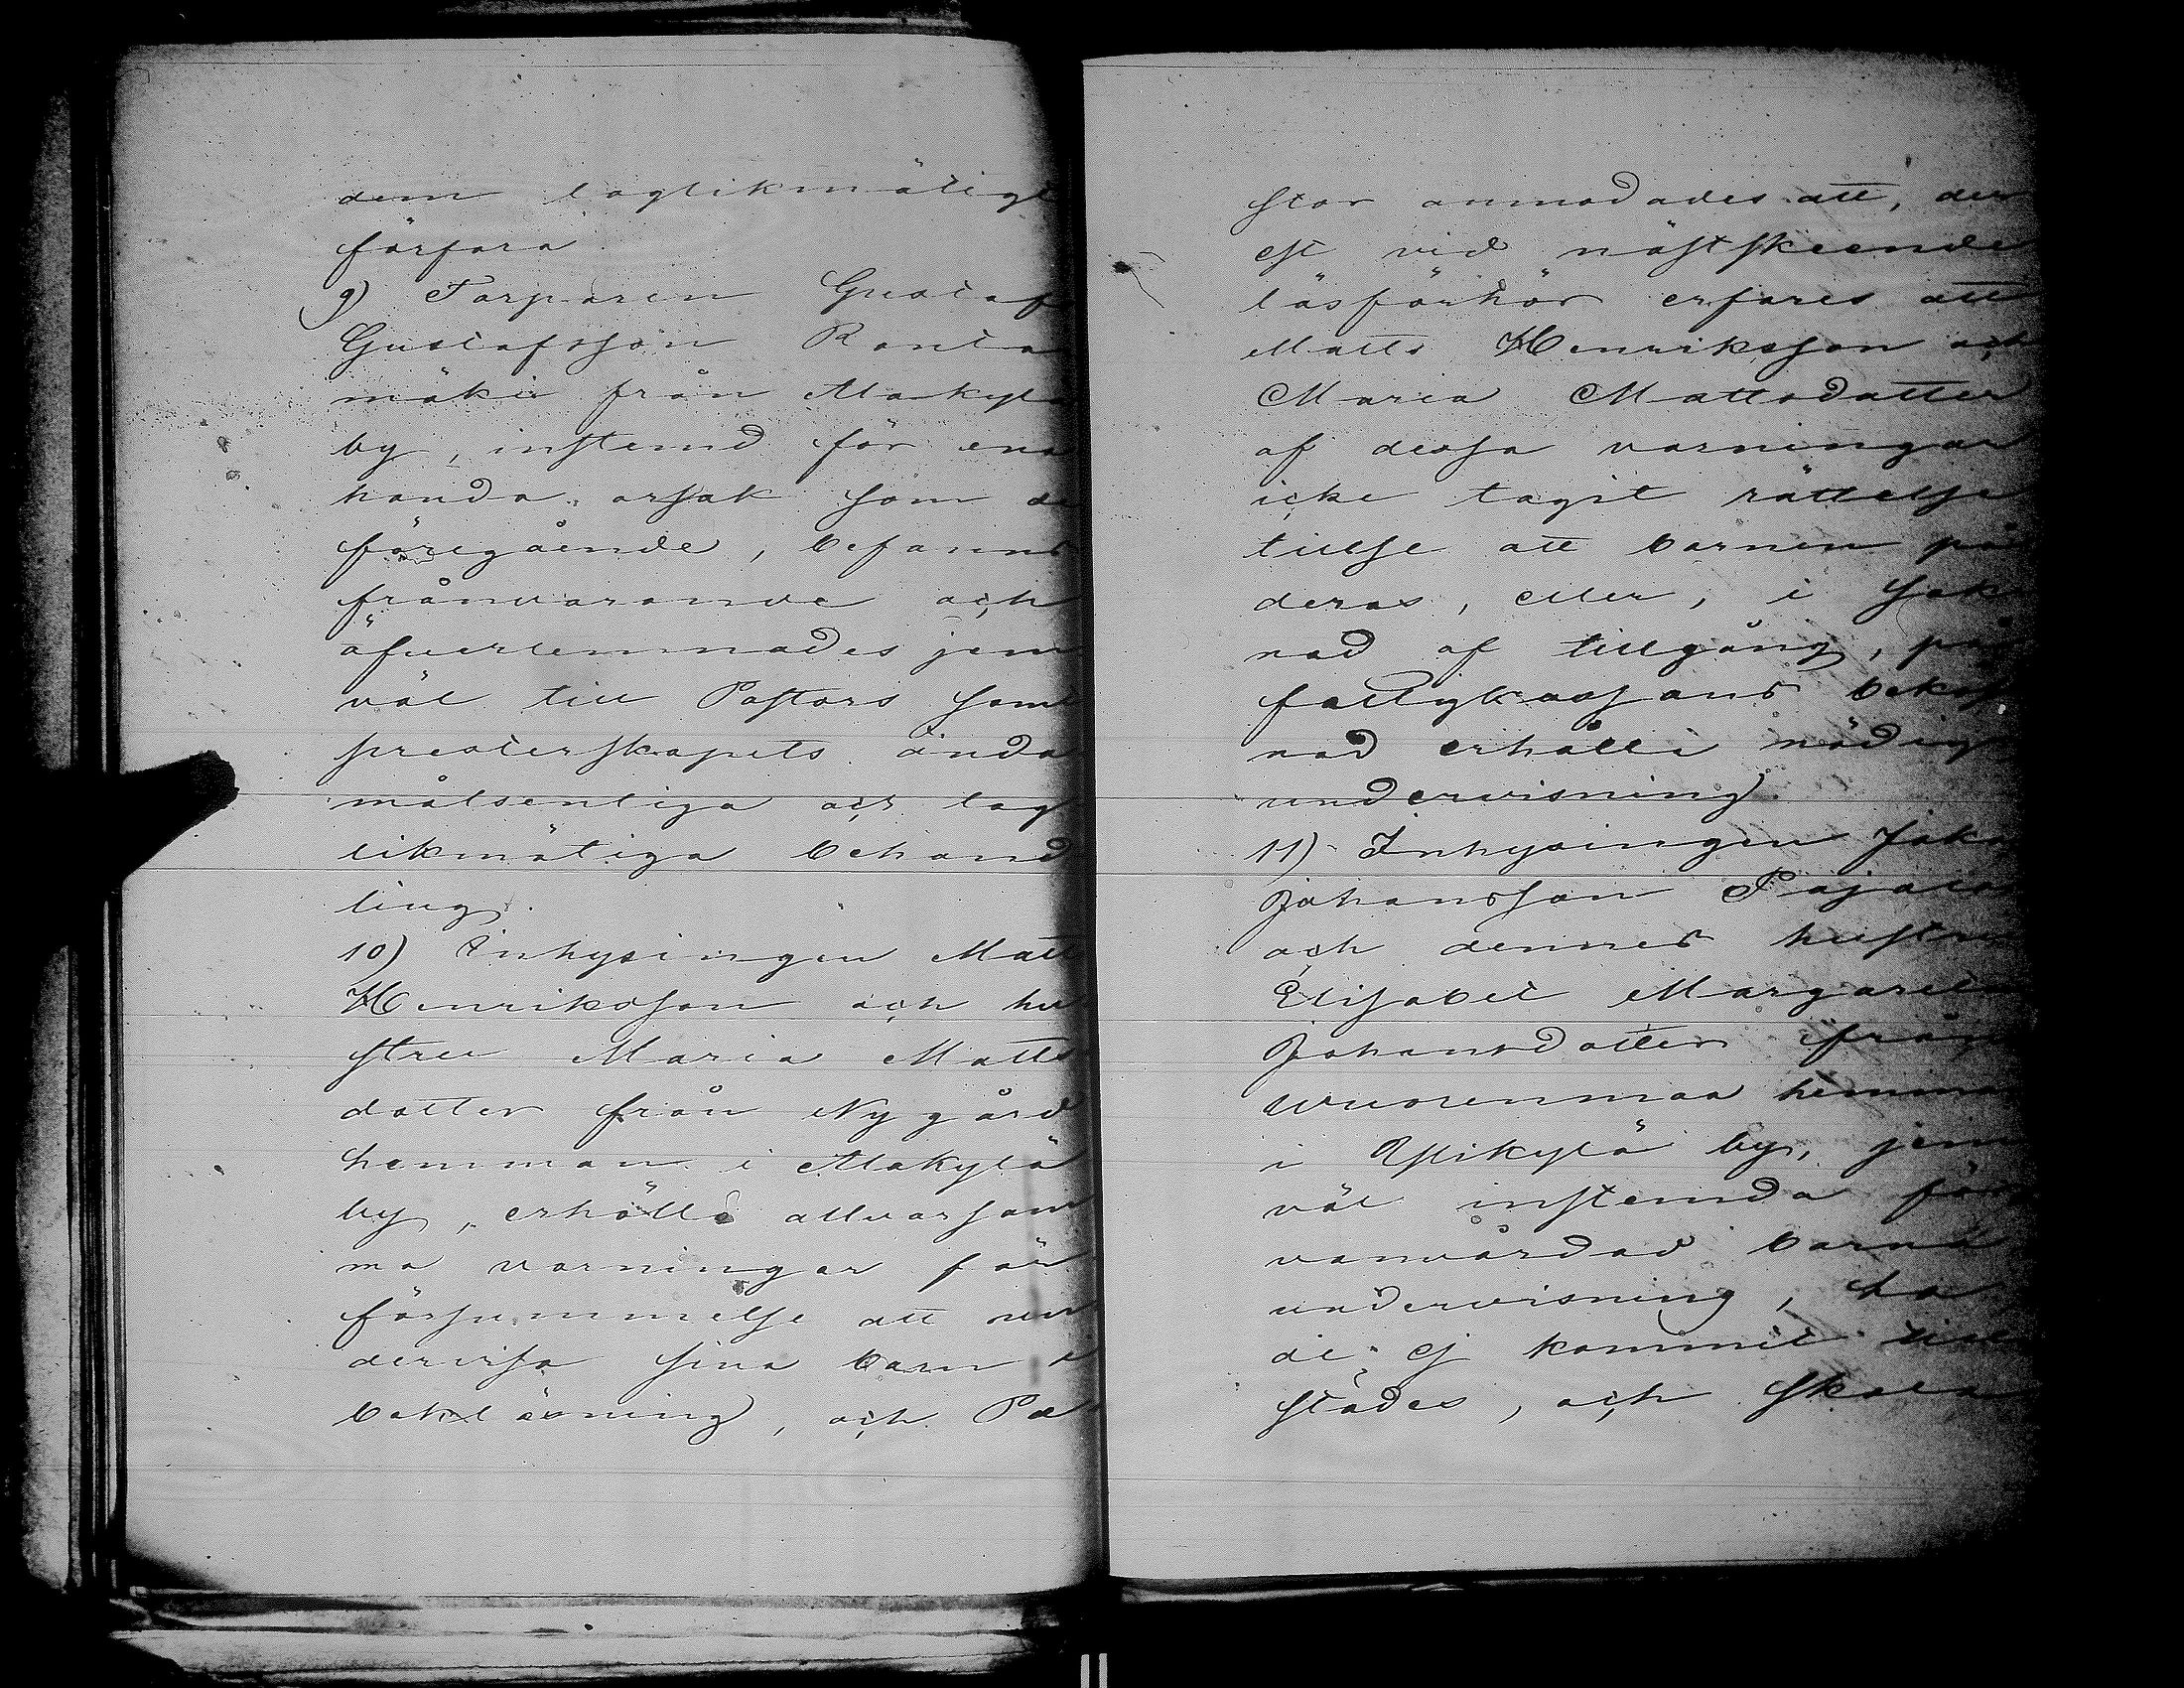 dem laglikmätigt
förfara
9) Torparen Gustaf
Gustafsson Ranta
mäki från Makylä
by, instemd för ena
handa orsak som de
föregående, befanns
frånvarande och
öfverlemnades jem
väl till Pastors samt
presterskapets ända
målsenliga och lag
likmätiga behand
ling.
10) Inhysingen Matt
Henriksson och hu
stru Maria Matts
dotter från Nygård
hemman i Makylä
by, erhöllo allvarsam
ma varningar för
försummelse att un
dervisa sina barn i
bokläsning, och Pa
stor anmodades att, der
est vid nästskeende
läsförhör erfares att
Matts Henriksson och
Maria Mattsdotter
af dessa varningar
icke tagit rättelse
tillse att barnen på
deras, eller, i sak
nad af tillgång, på
fattigkassans bekost
nad erhålla nödig
undervisning.
11) Inhysingen Jak
Johansson Pajala
och dennes hustru
Elisabet Margareta
Johansdotter från
Wuorenmaa hemman
i Ylikylä by, jem
väl instemda för
vanvårdad barna
undervisning, ha
de ej kommit till
städes, och skola